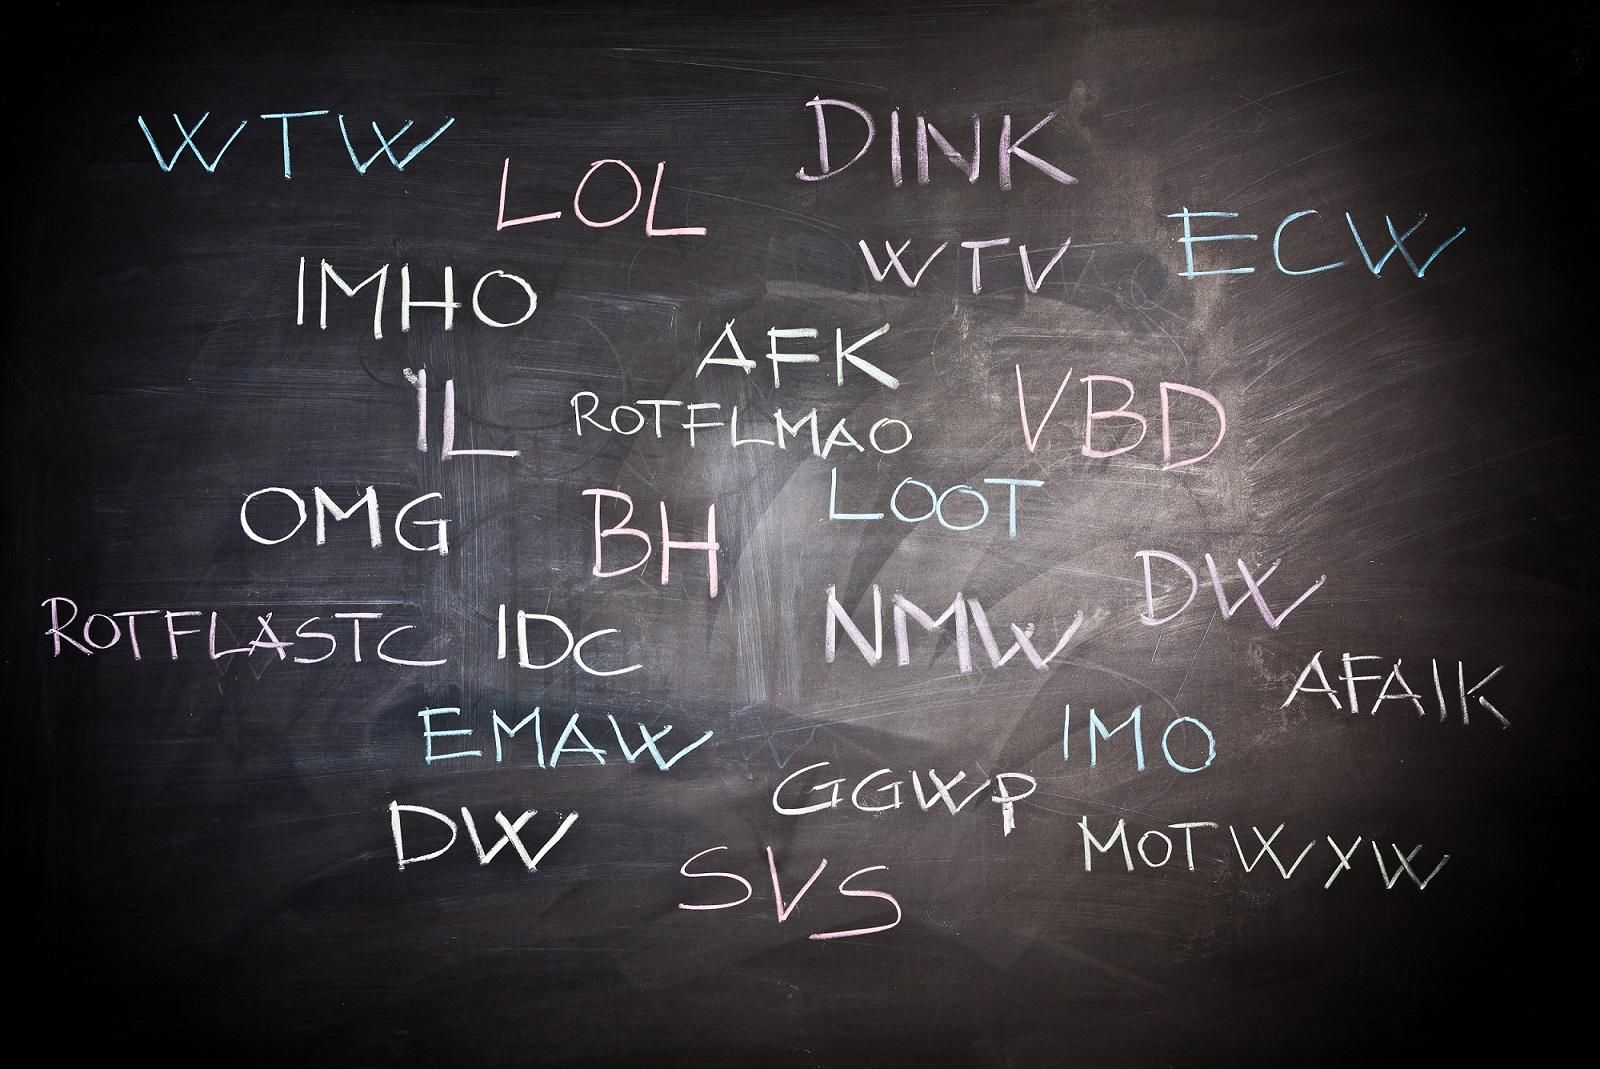 WTW
LOL
DINK
ECW
WTV
IMHO
AFK
IL
ROTFLMAO
VBD
LOOT
OMG
BH
DW
ROTFLASTC
IDC
NMW
AFAIK
EMAW
IMO
GGWP
DW
MOTWYW
SVS